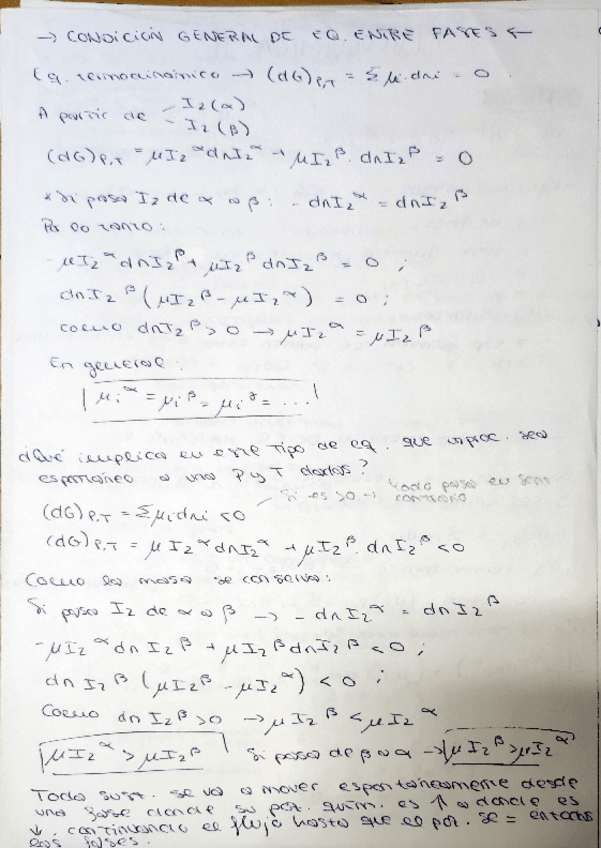 → CONDICIÓN GENERAL DE EQ. ENTRE FASES ←
Eq. termodinámico → (dG)P,T = Σμi.dni = 0
A partir de - I2(α)
- I2(β)
(dG)P,T = μI2^α dnI2^α + μI2^β. dnI2^β = 0
* Si pasa I2 de α a β: - dnI2^α = dnI2^β
Por lo tanto:
- μI2^α dnI2^β + μI2^β dnI2^β = 0 ;
dnI2^β (μI2^β - μI2^α) = 0 ;
como dnI2^β > 0 → μI2^α = μI2^β
En general:
μi^α = μi^β = μi^γ = ...
¿Qué implica en este tipo de eq. que un proc. sea
espontáneo a una P y T dadas?
Si es >0 → todo pasa en sent.
contrario
(dG)P,T = Σμidni < 0
(dG)P,T = μI2^α dnI2^α + μI2^β. dnI2^β < 0
Como la masa se conserva:
Si pasa I2 de α a β → - dnI2^α = dnI2^β
- μI2^α dnI2^β + μI2^β dnI2^β < 0 ;
dnI2^β (μI2^β - μI2^α) < 0 ;
Como dnI2^β > 0 → μI2^β < μI2^α
μI2^α > μI2^β Si pasa de β a α → μI2^β > μI2^α
Toda sust. se va a mover espontáneamente desde
una fase donde su pot. quím. es ↑ a donde es
↓, continuando el flujo hasta que el pot. se = en todas
las fases.